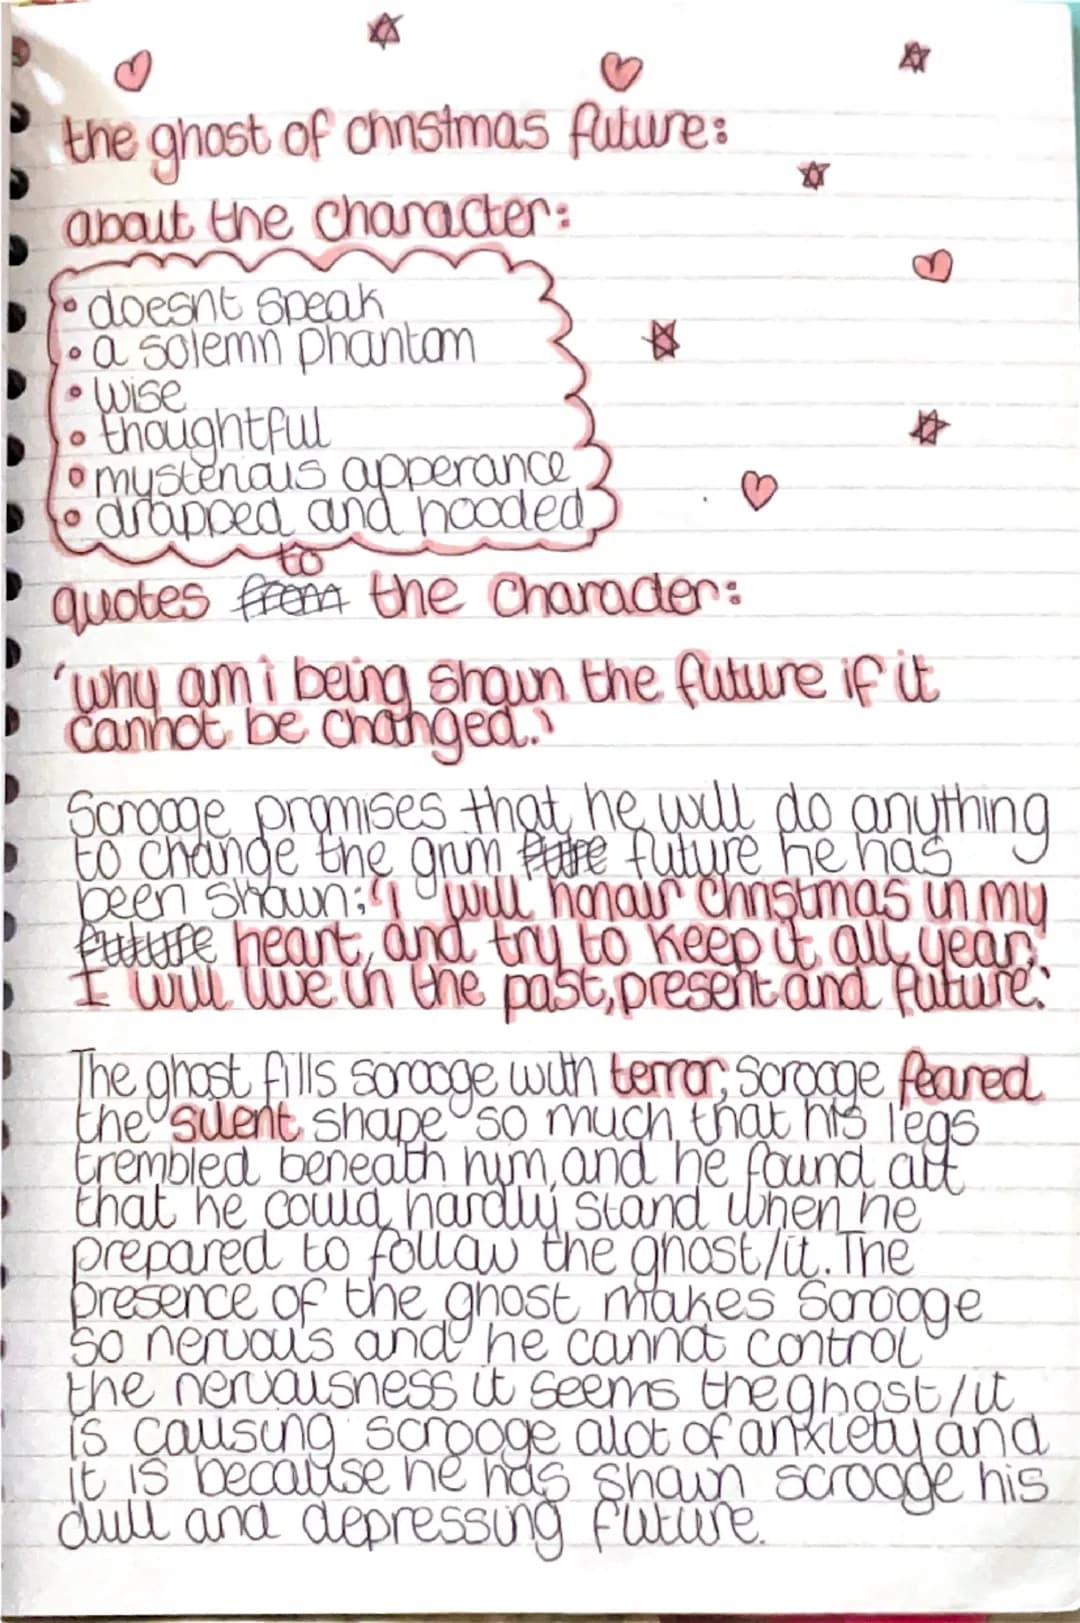 the ghost of christmas future:
about the character:
• doesnt speak
• a solemn phantom
• wise
• thoughtful
• mysterious apperance
• drapped and hooded
to
quotes from the character:
'why am i being shown the future if it
cannot be changed.'
Scrooge promises that he will do anything
to change the grim future he has
been shown: 'I will honour christmas in my
heart, and try to keep it all year.
I will live in the past, present and future.'
The ghost fills scrooge with terror, Scrooge feared
the silent shape so much that his legs
trembled beneath him, and he found out
that he could hardly stand when he
prepared to follow the ghost/it. The
presence of the ghost makes Scrooge
so nervous and he cannot control
the nervousness it seems the ghost/it
is causing scrooge alot of anxiety and
it is because he has shown scrooge his
dull and depressing future.